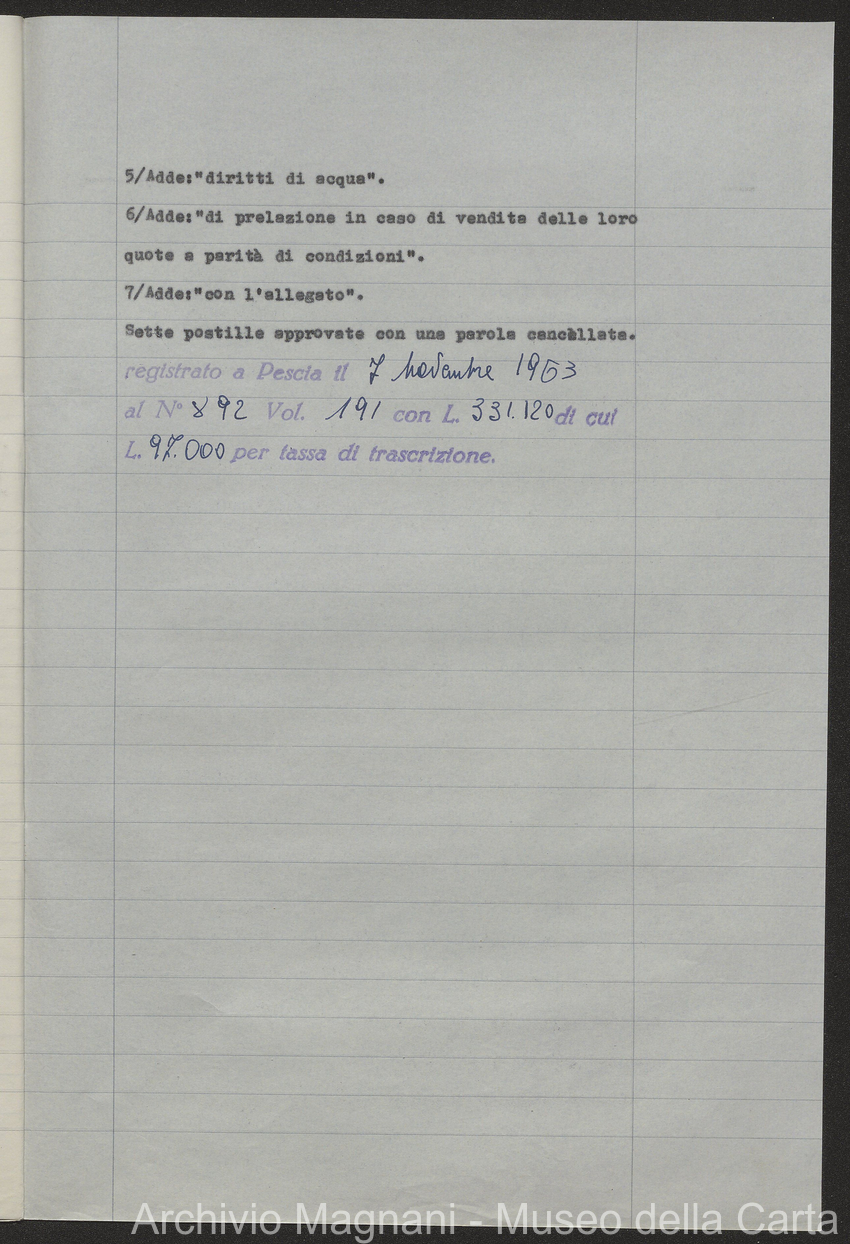 5/Adde:"diritti di acqua".
6/Adde:"di prelazione in caso di vendita delle loro
quote a parità di condizioni".
7/Adde:"con l'allegato".
Sette postille approvate con una parola cancellata.
registrato a Pescia il 7 novembre 1963
al N° 892 Vol. 191 con L. 331.120 di cui
L. 97.000 per tassa di trascrizione.
Archivio Magnani - Museo della Carta